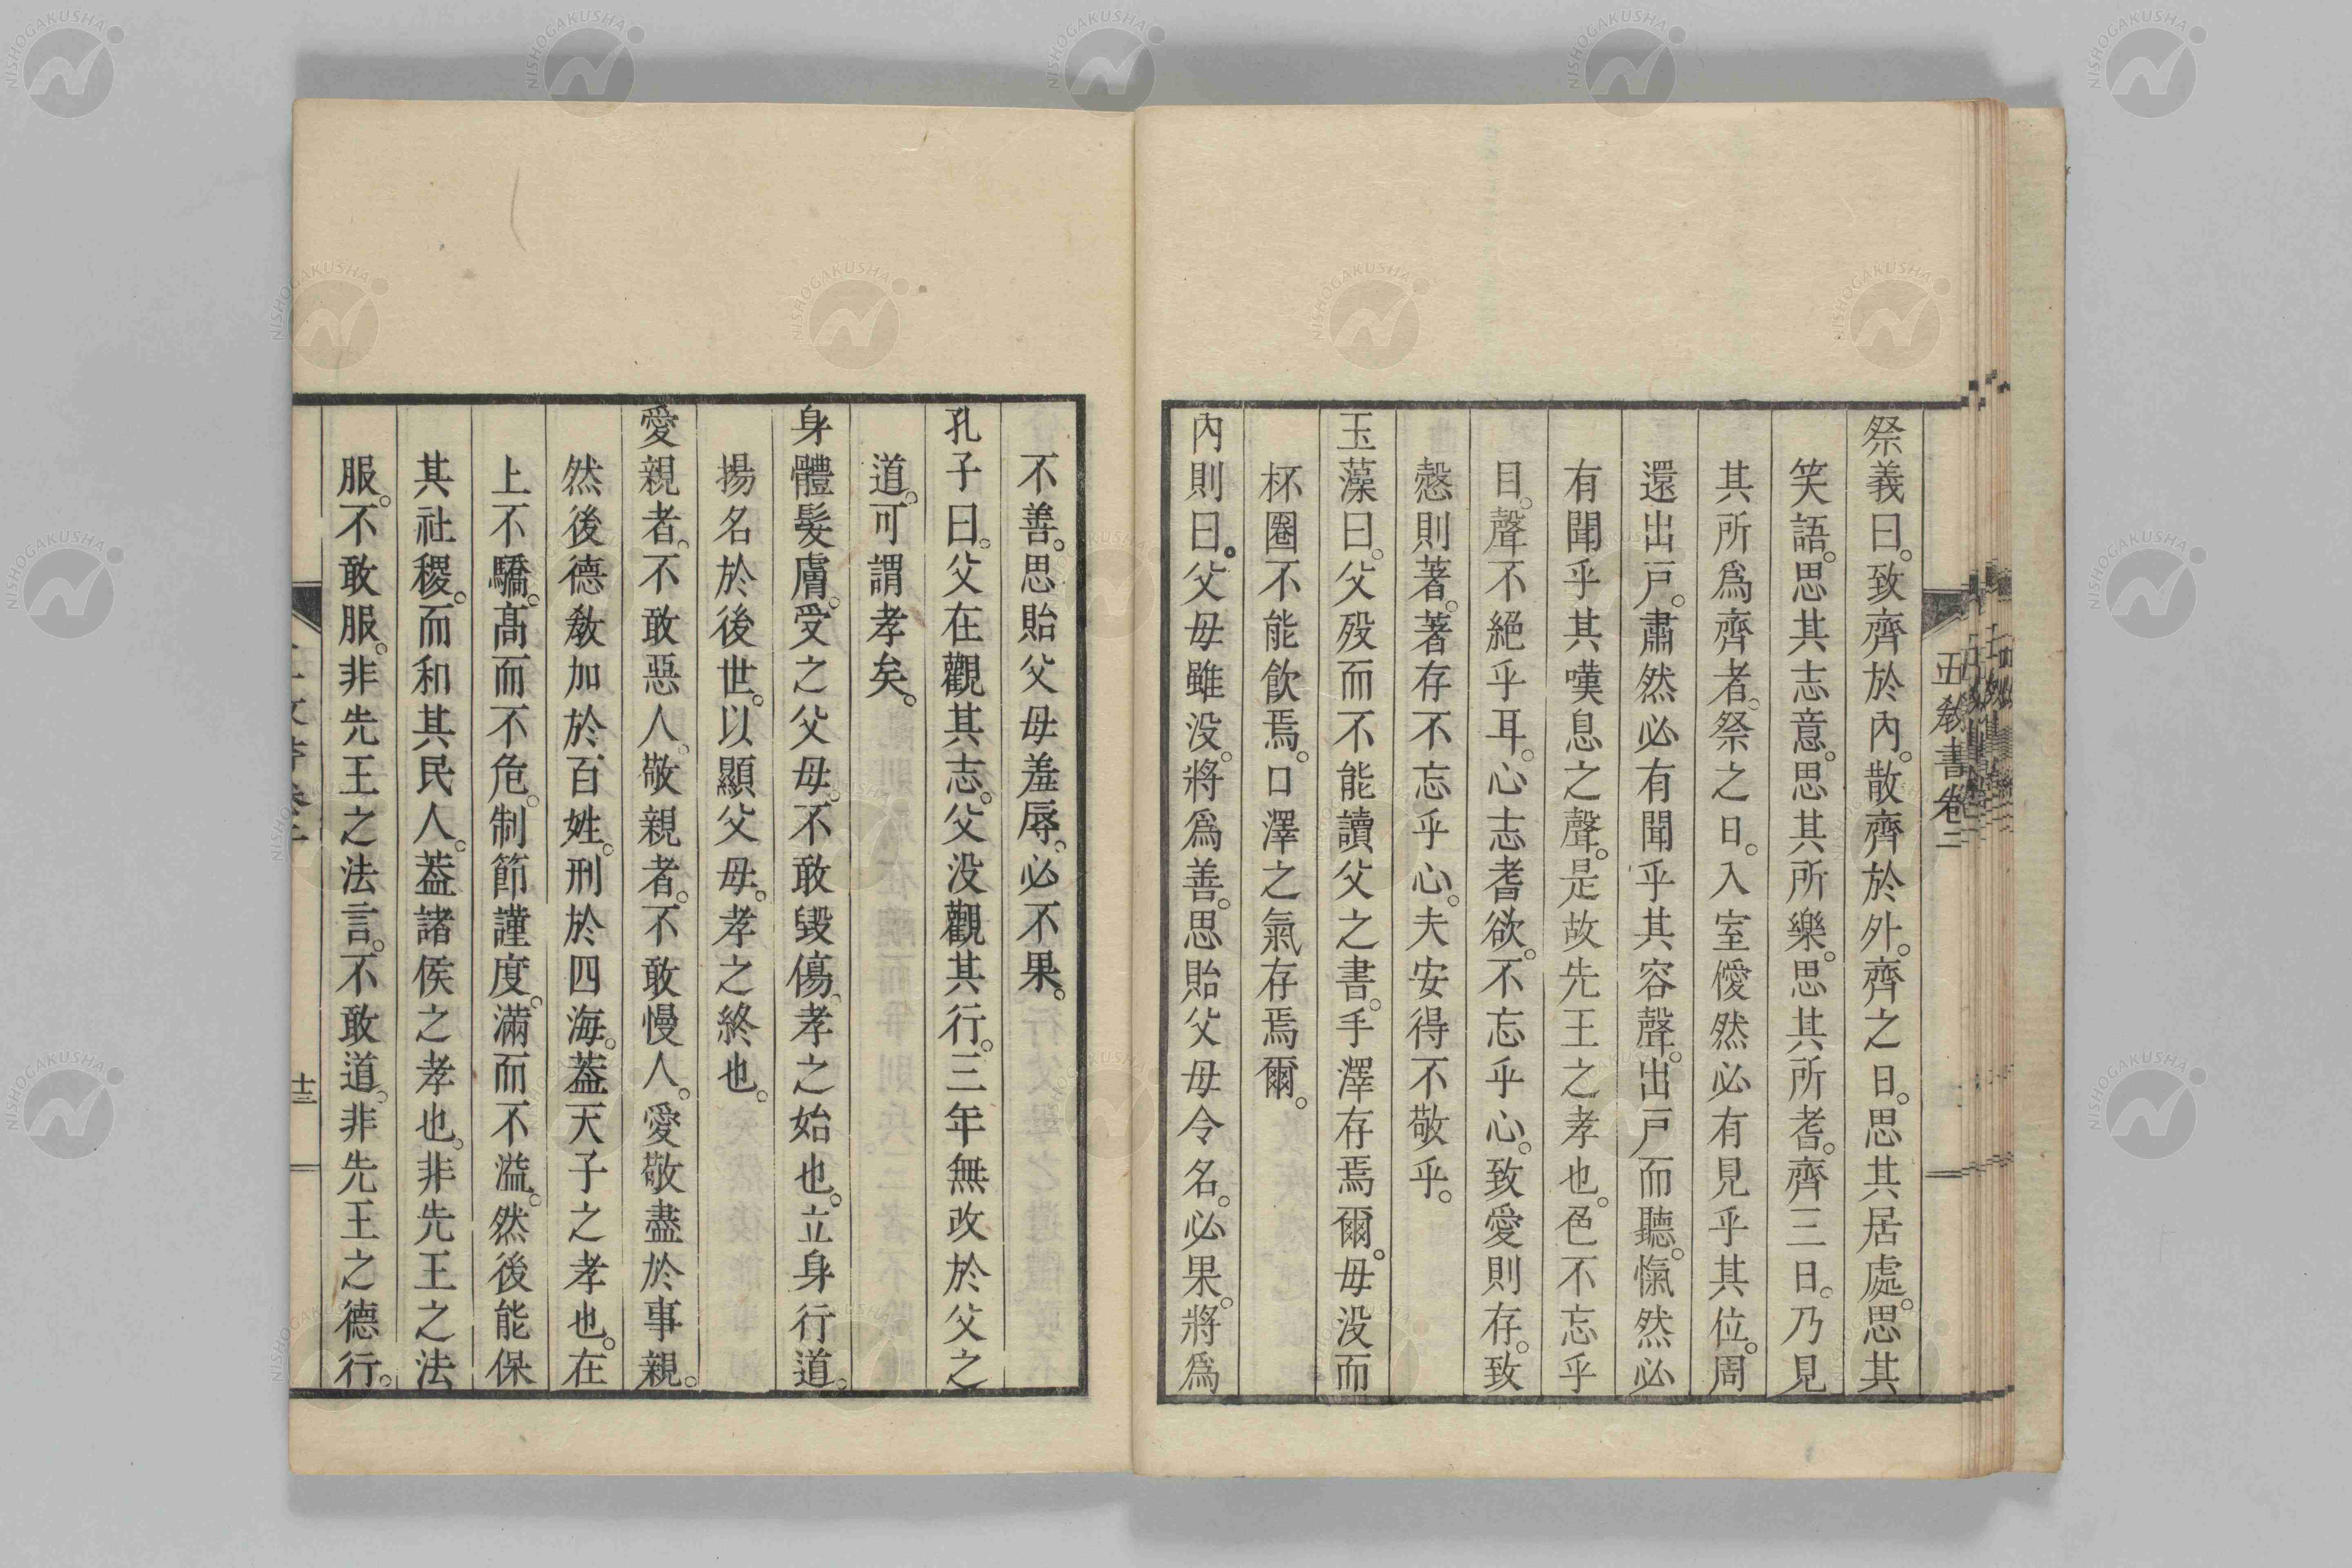 五敎書卷二
祭義曰。致齊於內。散齊於外。齊之日。思其居處。思其
笑語。思其志意。思其所樂。思其所耆。齊三日。乃見
其所爲齊者。祭之日。入室僾然必有見乎其位。周
還出戸。肅然必有聞乎其容聲。出戸而聽。愾然必
有聞乎其嘆息之聲。是故先王之孝也。色不忘乎
目。聲不絕乎耳。心志耆欲。不忘乎心。致愛則存。致
愨則著。著存不忘乎心。夫安得不敬乎。
玉藻曰。父歿而不能讀父之書。手澤存焉爾。母没而
杯圈不能飮焉。口澤之氣存焉爾。
內則曰。父母雖没。將爲善。思貽父母令名。必果。將爲
不善。思貽父母羞辱。必不果。
孔子曰。父在觀其志。父没觀其行。三年無改於父之
道。可謂孝矣。
身體髮膚。受之父母。不敢毀傷。孝之始也。立身行道。
揚名於後世。以顯父母。孝之終也。
愛親者。不敢惡人。敬親者。不敢慢人。愛敬盡於事親。
然後德敎加於百姓。刑於四海。葢天子之孝也。在
上不驕。高而不危。制節謹度。滿而不溢。然後能保
其社稷。而和其民人。葢諸侯之孝也。非先王之法
服。不敢服。非先王之法言。不敢道。非先王之德行。
十三
NISHOGAKUSHA